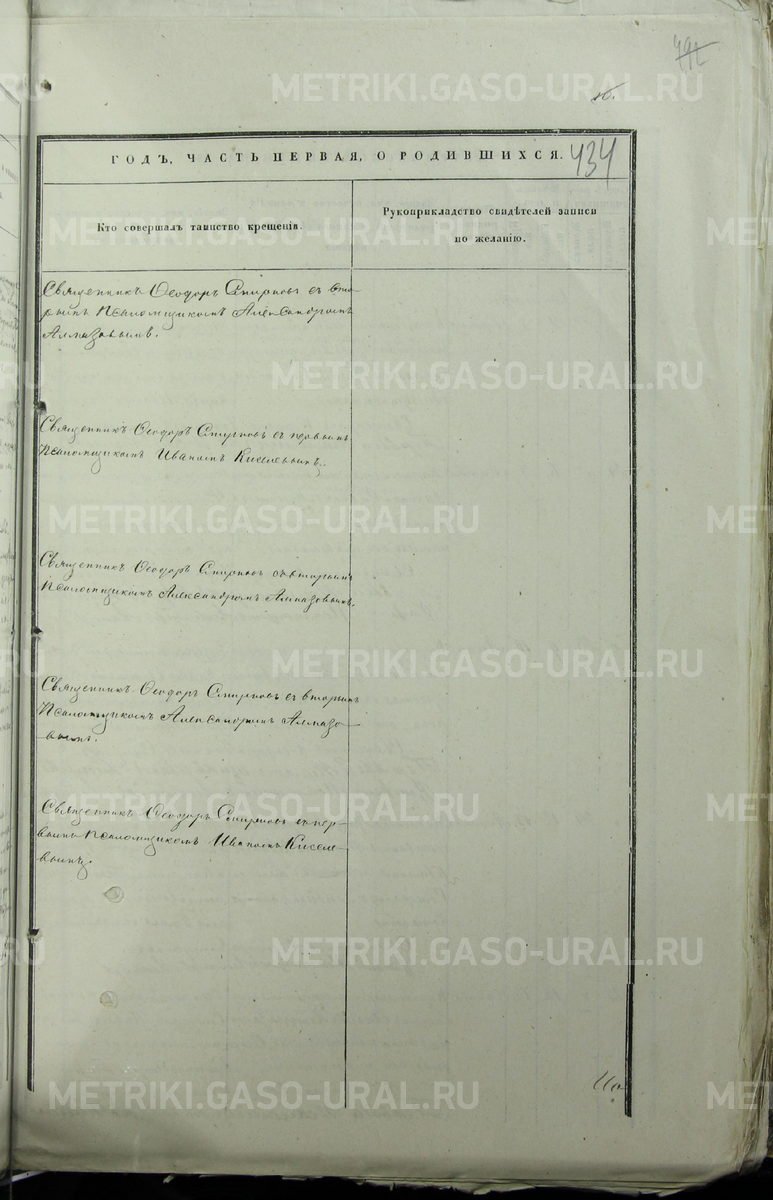 792
16.
ГОДЪ, ЧАСТЬ ПЕРВАЯ, О РОДИВШИХСЯ.
434
Кто совершалъ таинство крещенія.
Рукоприкладство свидѣтелей записи
по желанію.
Священникъ Ѳеодоръ Смирновъ съ вто-
рымъ Псаломщикомъ Александромъ
Алмазовымъ.
Священникъ Ѳеодоръ Смирновъ съ первымъ
Псаломщикомъ Иваномъ Киселевымъ.
Священникъ Ѳеодоръ Смирновъ съ вторымъ
Псаломщикомъ Александромъ Алмазовымъ.
Священникъ Ѳеодоръ Смирновъ съ вторымъ
Псаломщикомъ Александромъ Алмазо-
вымъ.
Священникъ Ѳеодоръ Смирновъ съ пер-
вымъ Псаломщикомъ Иваномъ Киселе-
вымъ.
METRIKI.GASO-URAL.RU